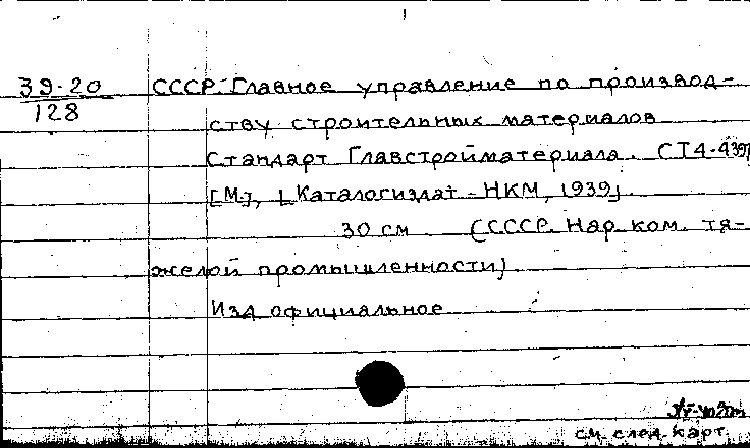 39-20 СССР. Главное управление по производ-
128
ству строительных материалов
Стандарт Главстройматериала. СТ4-439
[М.], [Каталогиздат - НКМ, 1939].
30 см (СССР. Нар. ком. тя-
желой промышленности)
Изд официальное
см. след. карт.